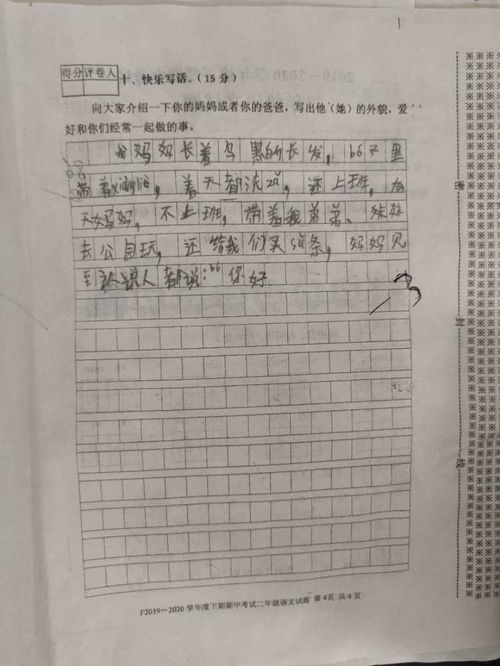 得分 评卷人
十、快乐写话。(15 分)
向大家介绍一下你的妈妈或者你的爸爸，写出他(她)的外貌，爱
好和你们经常一起做的事。
我妈妈长着乌黑的长发，里
带着，着天都，还上班，有
天妈妈，不上班，带着我弟弟、妹妹
去公园玩，还给我们买条，妈妈见
到人都说：“你好
密
封
线
F2019—2020 学年度下期期中考试二年级语文试题 第 4 页 共 4 页